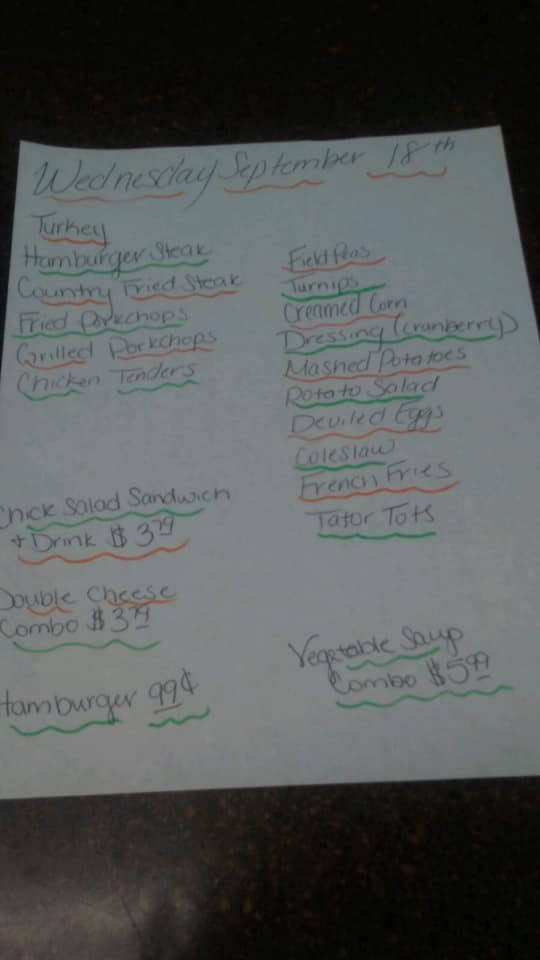 Wednesday September 18th
Turkey
Hamburger Steak
Country Fried Steak
Fried Porkchops
Grilled Porkchops
Chicken Tenders
Field Peas
Turnips
Creamed Corn
Dressing (cranberry)
Mashed Potatoes
Potato Salad
Deviled Eggs
Coleslaw
French Fries
Tator Tots
Chick Salad Sandwich
+ Drink $3.79
Double Cheese
Combo $3.79
Hamburger 99¢
Vegetable Soup
Combo $5.99